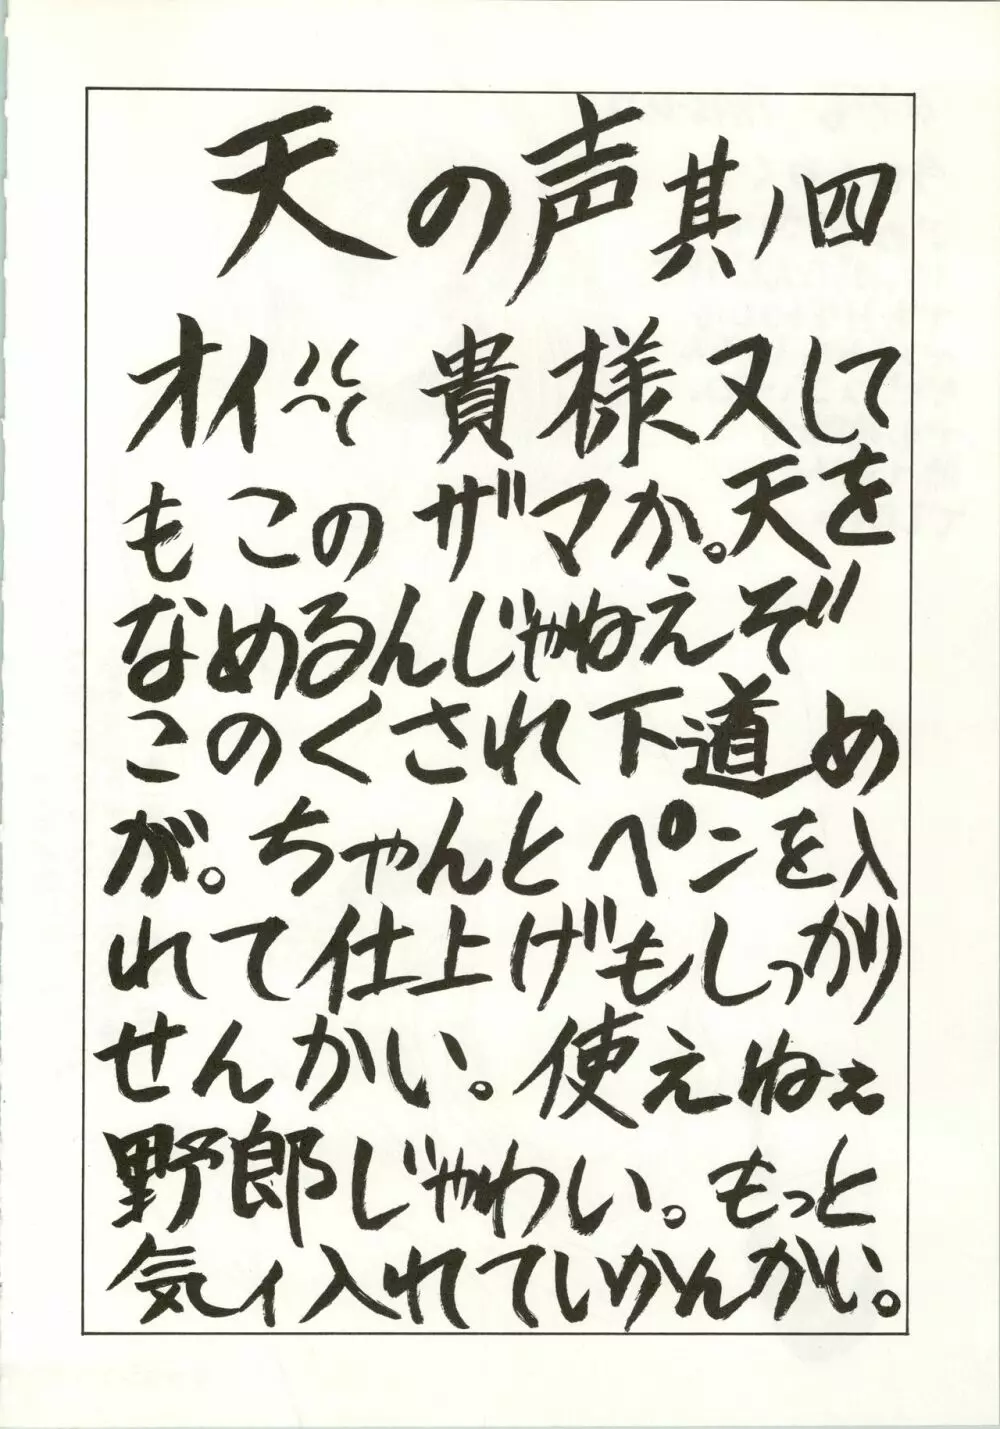 天の声其ノ四
オイハルペて貴様又して
もこのザマか。天を
なめるんじゃねえぞ
このくされ下道め
が。ちゃんとペンを入
れて仕上げもしっかり
せんかい。使えねェ
野郎じゃわい。もっと
気ィ入れていかんかい。